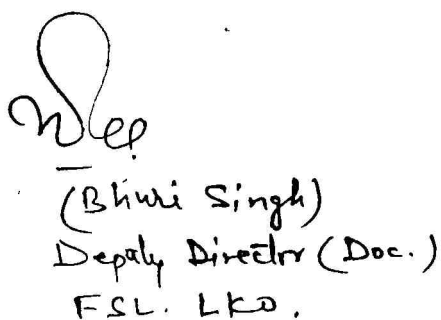 (Bhuri Singh)
Deputy Director (Doc.)
FSL. LKO.